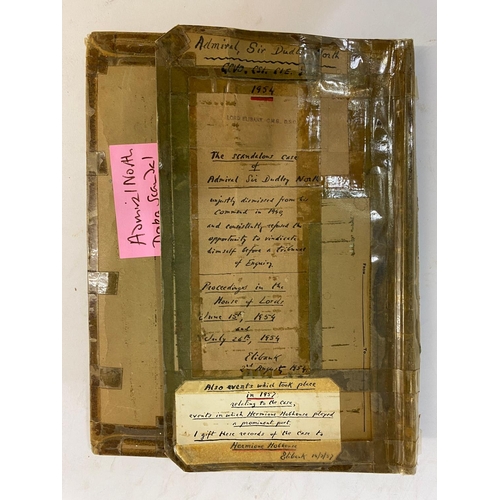 Admiral, Sir Dudley North
GCVO. CSI. CIE.
1954
The scandalous case
of
Admiral Sir Dudley North
unjustly dismissed from his
command in 1940
and consistently refused the
opportunity to vindicate
himself before a tribunal
of Enquiry
Proceedings in the
House of Lords
June 15th, 1954
and
July 26th, 1954
Elibank
2nd August 1954
Also events which took place
in 1957
relating to the case;
events in which Hermione Hothouse played
a prominent part.
I gift these records of the case to
Hermione Hothouse
Elibank
Admiral North
Scandal